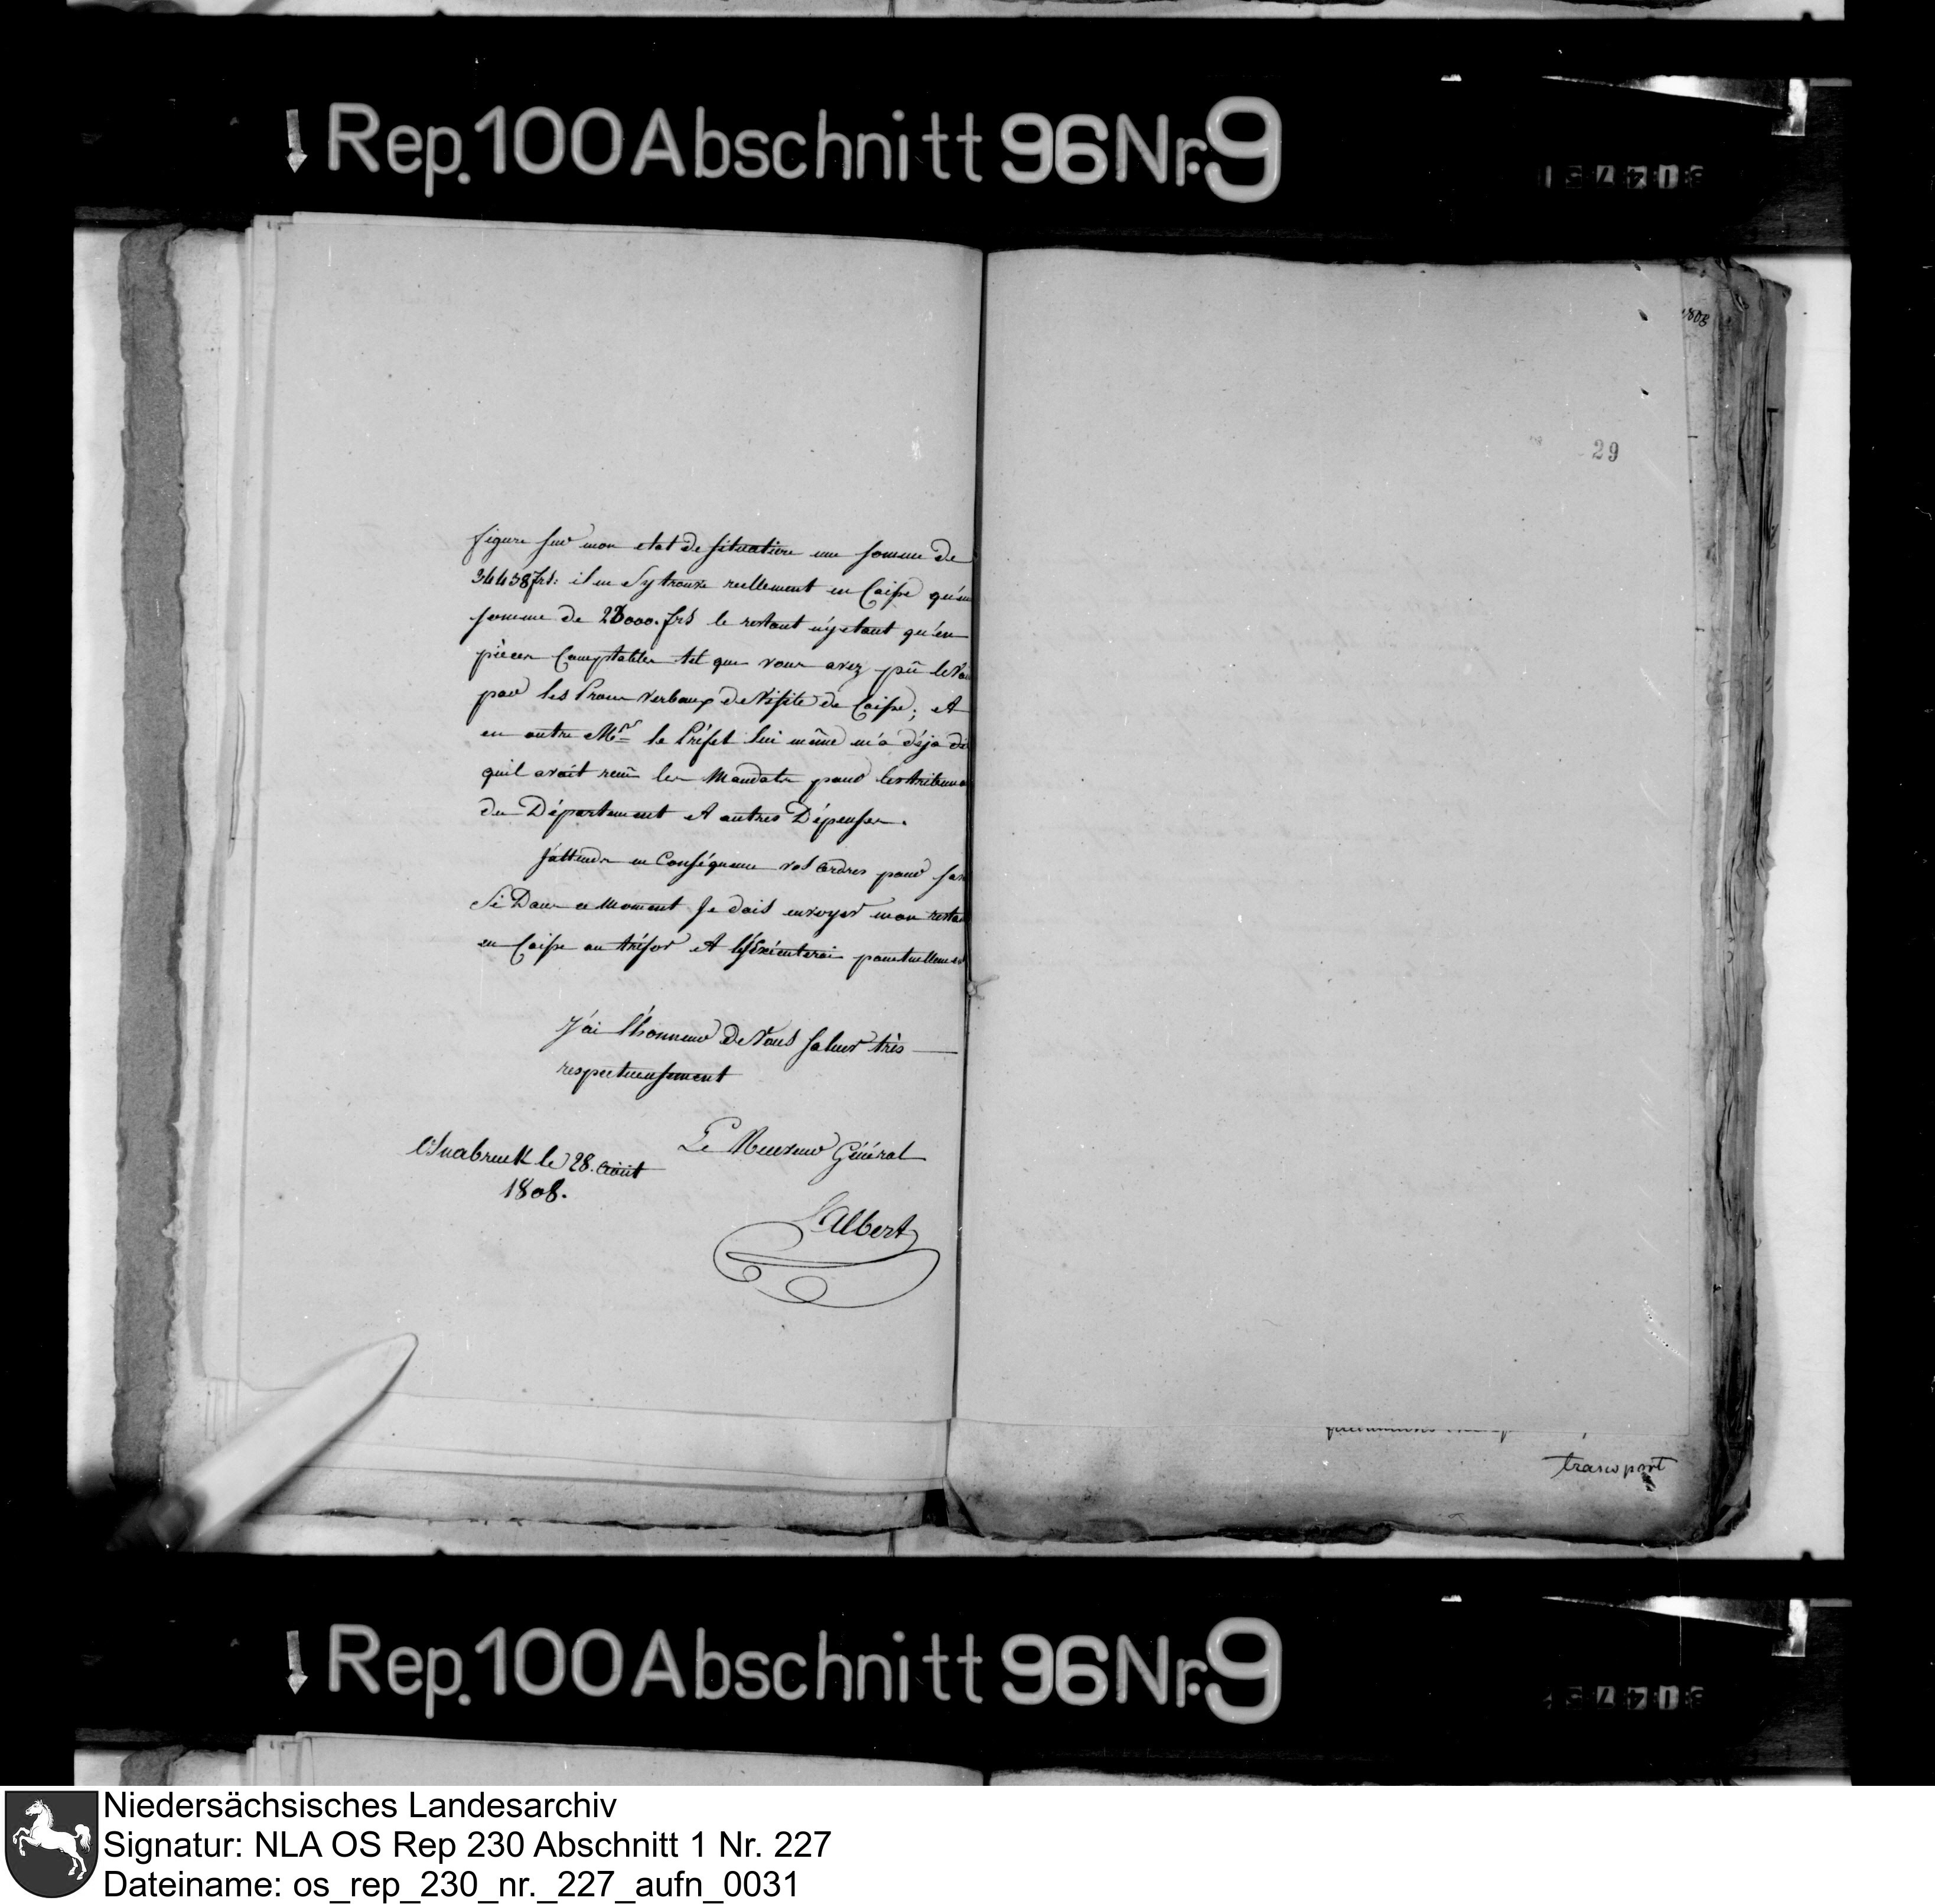 Rep. 100 Abschnitt 96 Nr. 9
1808
29
figure sur mon etat de situation une somme de
34458 frs: il ne sy trouve reellement en Caisse qu'une
somme de 28000. frs le restant n'y etant qu'en
pièces Comptables tel que vous avez pû le voir
par les Procès verbaux de Visite de Caisse; et
en outre Mr. le Préfet lui même m'a déja dit
quil avait remis les Mandats pour les tribunaux
du Département et autres Dépenses.
J'attends en Conséquence vos ordres pour savoir
Si Dans ce moment Je dois envoyer mon restant
en Caisse au trésor et les Exécuterai ponctuellement
J'ai l'honneur de Vous saluer très
respectueusement
Le Receveur Général
Osnabruck le 28. Août
1808.
Albert
transport
Rep. 100 Abschnitt 96 Nr. 9
Niedersächsisches Landesarchiv
Signatur: NLA OS Rep 230 Abschnitt 1 Nr. 227
Dateiname: os_rep_230_nr._227_aufn_0031